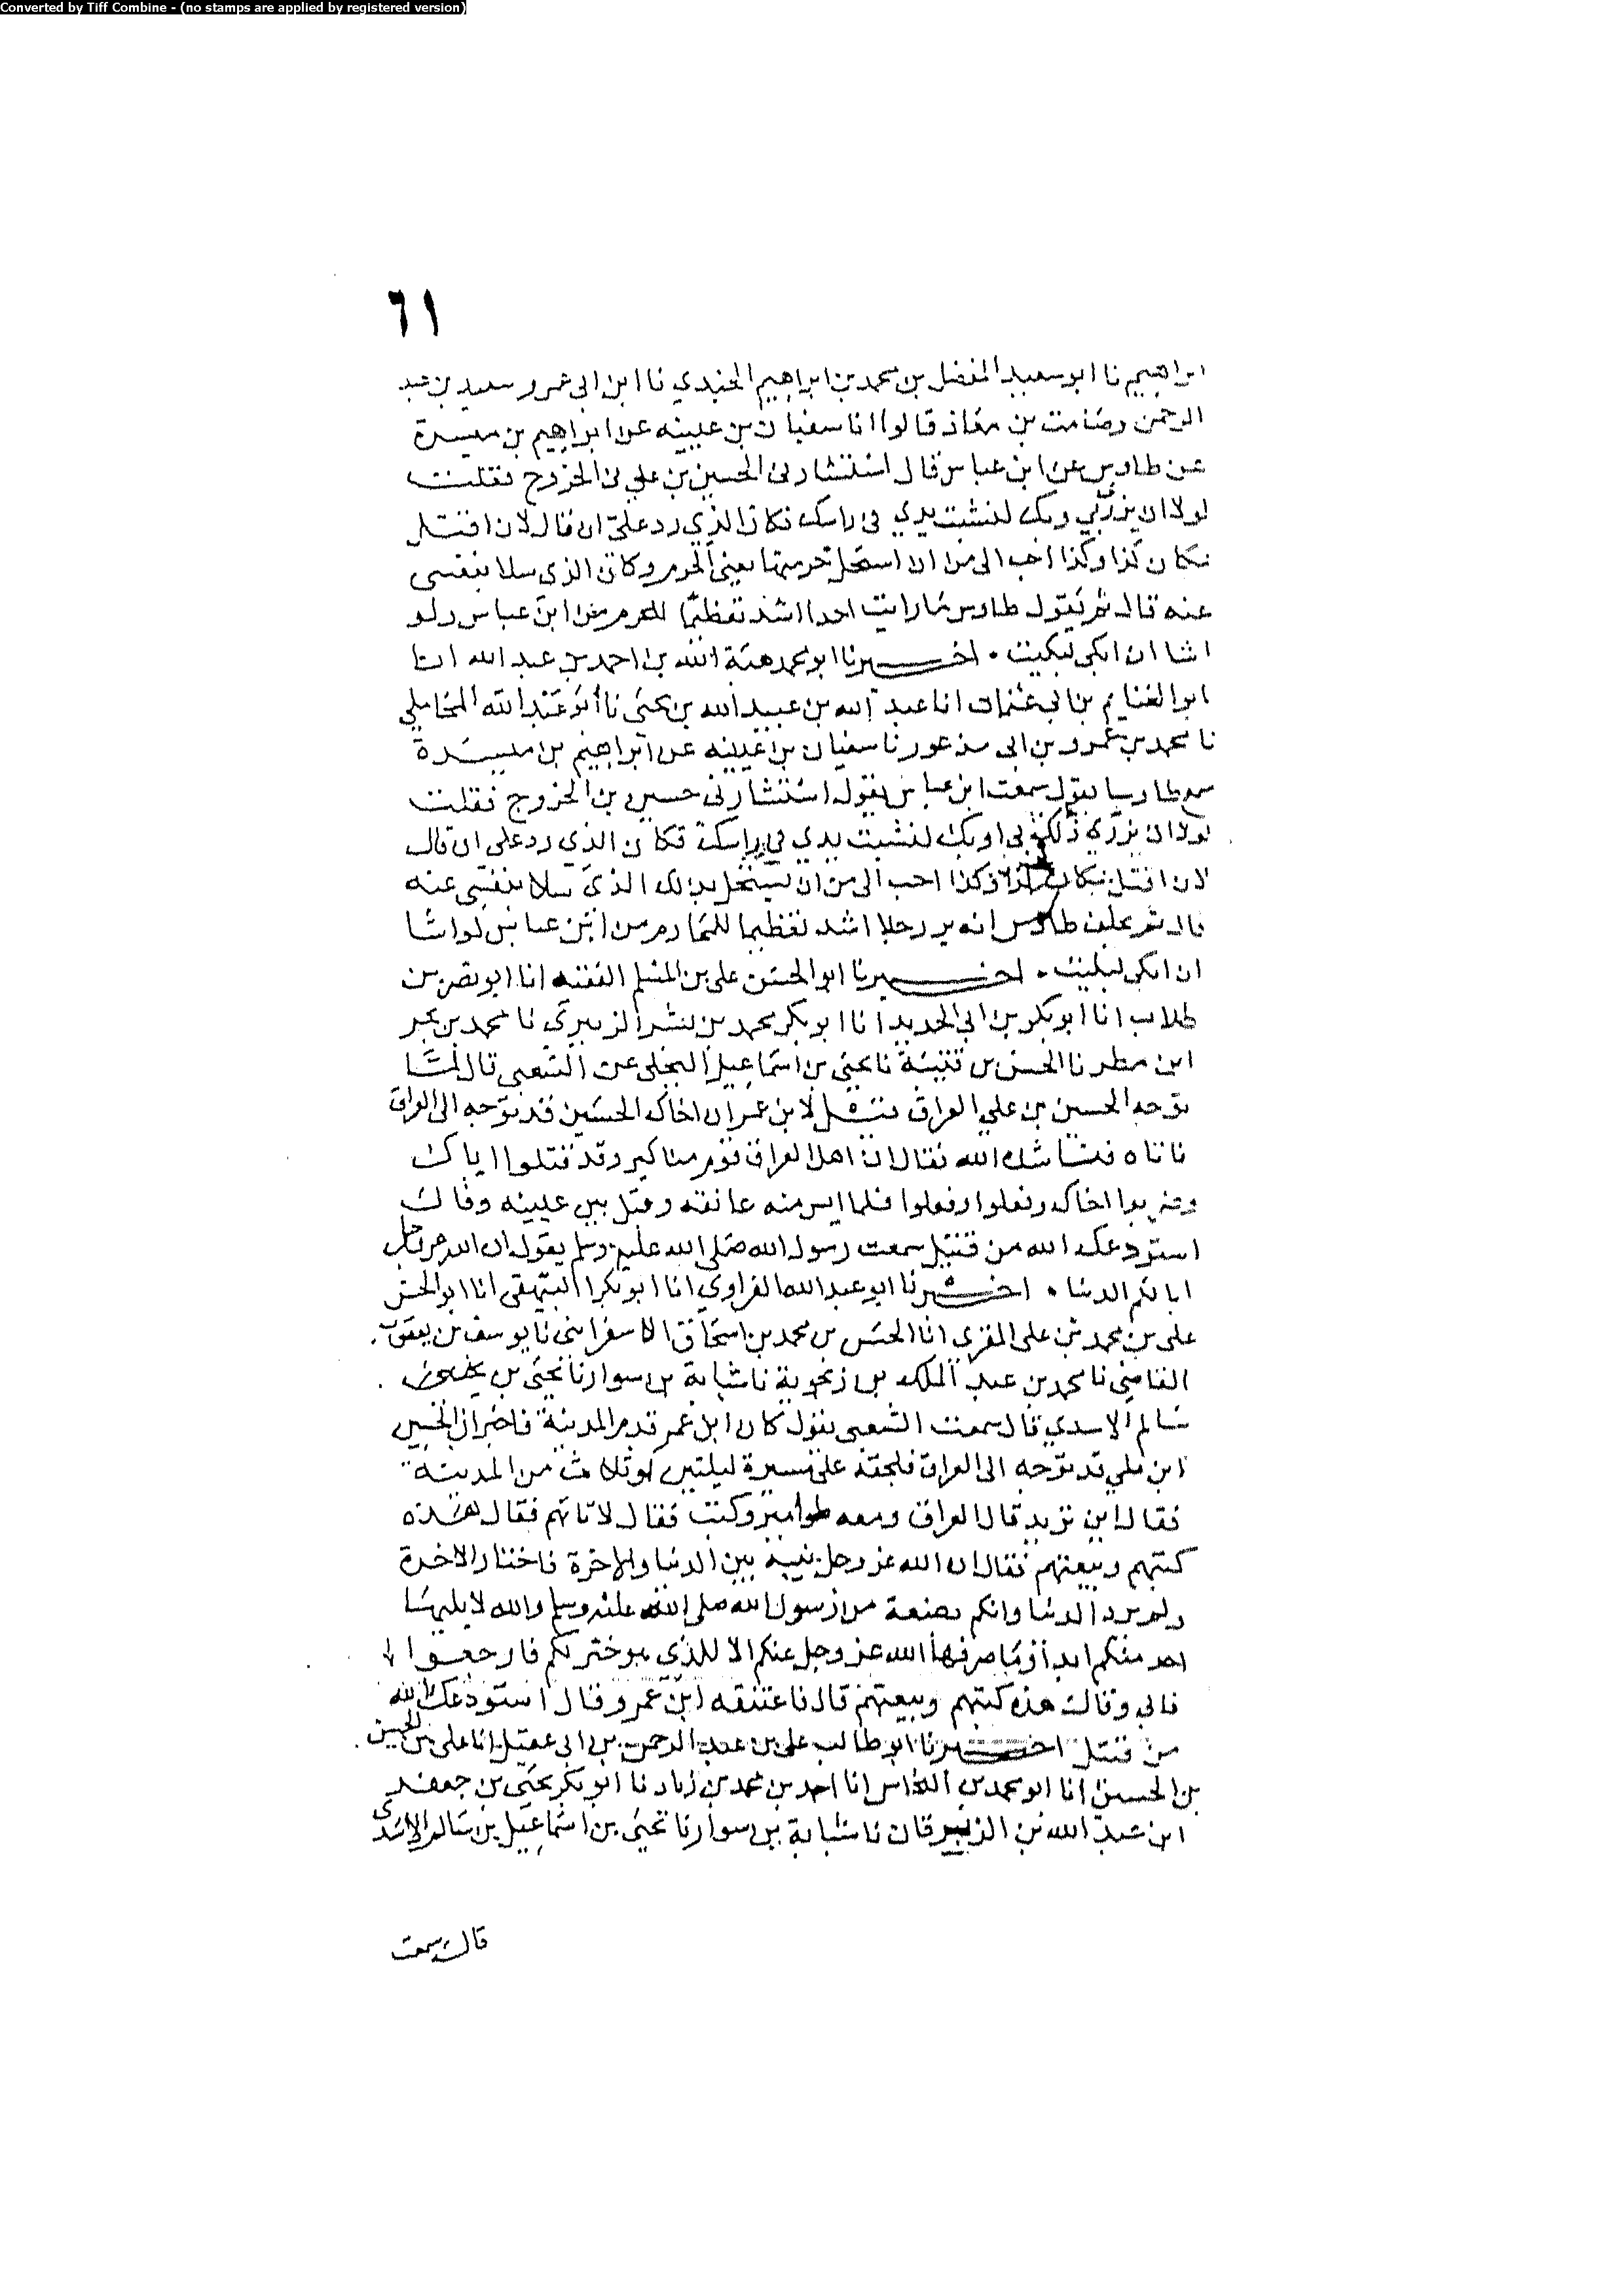 Converted by Tiff Combine - (no stamps are applied by registered version)
٦١
ابراهيم نا ابو سعيد المفضل بن محمد بن ابراهيم الجندي نا ابن ابى عمر و سعيد بن عبد
الرحمن وصامت بن معاذ قالوا انا سفيان بن عيينه عن ابراهيم بن ميسرة
عن طاوس عن ابن عباس قال استشارنى الحسين بن على فى الخروج فقلت
لولا ان يزري بي وبك لنشبت يدي فى راسك فكان الذي رد علي ان قال لان اقتل
بمكان كذا وكذا احب الى من ان استحل حرمتها يعنى الحرم وكان الذى سلا بنفسى
عنه قال ثم يقول طاوس ما رايت احدا اشد تعظيما للحرم من ابن عباس ولو
اشا ان ابكى لبكيت • اخبرنا ابو محمد هبة الله بن احمد بن عبد الله انا
ابو الغنايم بن ابى عثمان انا عبد الله بن عبيد الله بن يحيى نا أبو عبد الله المحاملي
نا محمد بن عمرو بن ابى مذعور نا سفيان بن عيينه عن ابراهيم بن ميسرة
سمع طاوسا يقول سمعت ابن عباس يقول استشارنى حسين بن الخروج فقلت
لولا ان يزري ذلك بي او بك لنشبت يدي في راسك فكان الذي رد على ان قال
لان اقتل بمكان كذا وكذا احب الى من ان يستحل بذلك الذى سلا بنفسى عنه
قال ثم يحلف طاوس انه ير رجلا اشد تعظيما للمحارم من ابن عباس لو اشا
ان ابكى لبكيت • اخبرنا ابو الحسن على بن المسلم الفقيه انا ابو نصر بن
طلاب انا ابو بكر بن ابى الحديد انا ابو بكر محمد بن بشر الزبيري نا محمد بن بحر
ابن مطر نا الحسن بن قتيبة نا يحيى بن اسماعيل البجلى عن الشعبى قال لما
توجه الحسين بن علي العراق قيل لابن عمر ان اخاك الحسين قد توجه الى العراق
فاتاه فناشده الله فقال ان اهل العراق قوم مناكير وقد قتلوا اباك
وضربوا اخاك وفعلوا وفعلوا فلما ايس منه عانقه وقبل بين عينيه وقال
استودعك الله من قتيل سمعت رسول الله صلى الله عليه وسلم يقول ان الله عز وجل
ابا لكم الدنيا • اخبرنا ابو عبد الله الفراوي انا ابو بكر البيهقى انا ابو الحسن
على بن محمد بن على المقرى انا الحسن بن محمد بن اسحاق الاسفراينى نا يوسف بن يعقوب
القاضي نا محمد بن عبد الملك بن زنجوية نا شبابة بن سوار نا يحيى بن
سالم الاسدي قال سمعت الشعبى يقول كان ابن عمر قدم المدينة فاخبر ان الحسين
ابن علي قد توجه الى العراق فلحقه على مسيرة ليلتين او ثلاث من المدينة
فقال اين تريد قال العراق ومعه طوامير وكتب فقال لا تاتهم فقال هذه
كتبهم وبيعتهم فقال ان الله عز وجل نبيه بين الدنيا والاخرة فاختار الاخرة
ولم يرد الدنيا وانكم بضعة من رسول الله صلى الله عليه وسلم والله لا يليها
احد منكم ابدا وما صرفها الله عز وجل عنكم الا للذي هو خير لكم فارجعوا
فابى وقال هذه كتبهم وبيعتهم قال فاعتنقه ابن عمر وقال استودعك الله
من قتيل اخبرنا ابو طالب على بن عبد الرحمن بن ابى عقيل انا على بن الحسن
بن الحسين انا ابو محمد بن النحاس انا احمد بن محمد بن زياد نا ابو بكر يحيى بن جعفر
ابن عبد الله بن الزبير قال نا شبابة بن سوار نا يحيى بن اسماعيل بن سالم الاسدى
قال سمعت